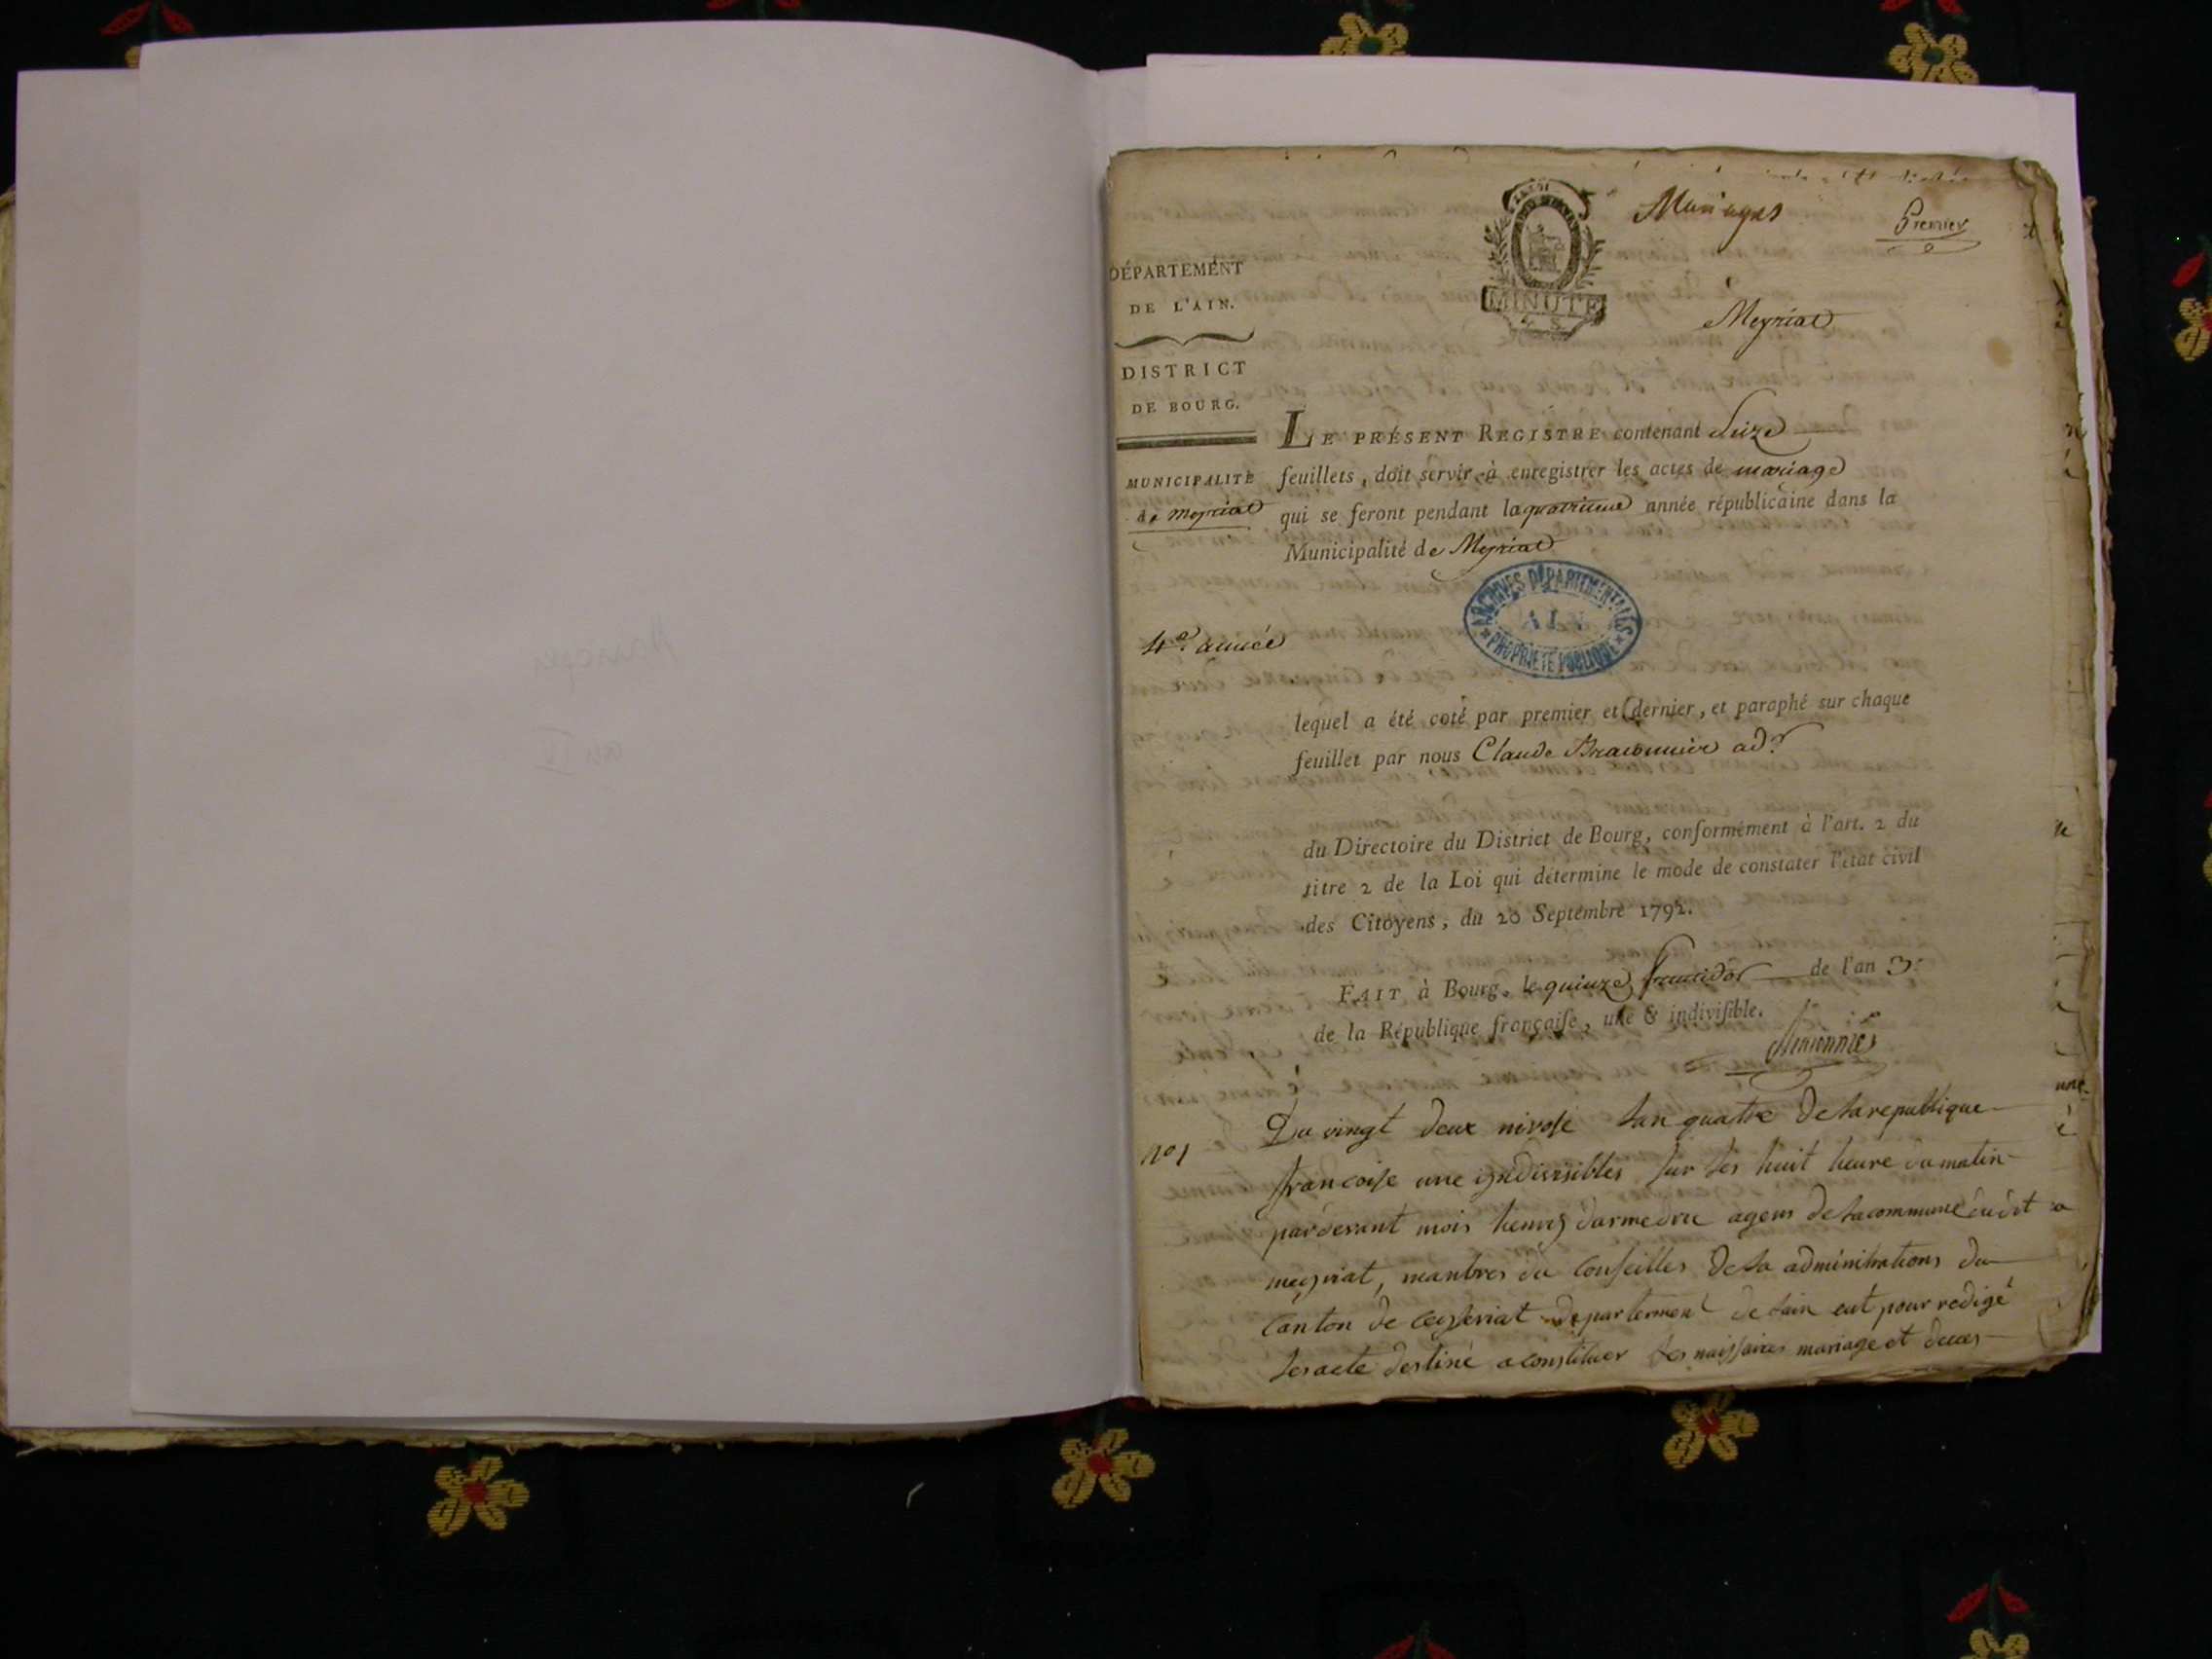 Mariages
Premier
MINUTE
Meyriat
DÉPARTEMENT
DE L'AIN.
DISTRICT
DE BOURG.
MUNICIPALITÉ
de Meyriat
LE PRÉSENT REGISTRE contenant Seize
feuillets, doit servir à enregistrer les actes de mariage
qui se feront pendant la quatrieme année républicaine dans la
Municipalité de Meyriat
ARCHIVES DÉPARTEMENTALES
AIN
PROPRIÉTÉ PUBLIQUE
4e. année
lequel a été coté par premier et dernier, et paraphé sur chaque
feuillet par nous Claude Braconnier ad.r
du Directoire du District de Bourg, conformément à l'art. 2 du
titre 2 de la Loi qui détermine le mode de constater l'état civil
des Citoyens, du 20 Septembre 1792.
FAIT à Bourg, le quinze fructidor de l'an 3.
de la République françaiſe, une & indiviſible.
Braconnier
no 1
Du vingt deux nivose lan quatre de la republique
francoise une indivisibles sur les huit heure du matin
pardevant mois henry darmedru agens de la commune dudit
meyriat, manbres du Conseilles de la adminitrations du
Canton de Ceyseriat departement de lain eut pour redigé
les acte destiné a constituer les naissances mariage et deces
Mariages
an IV